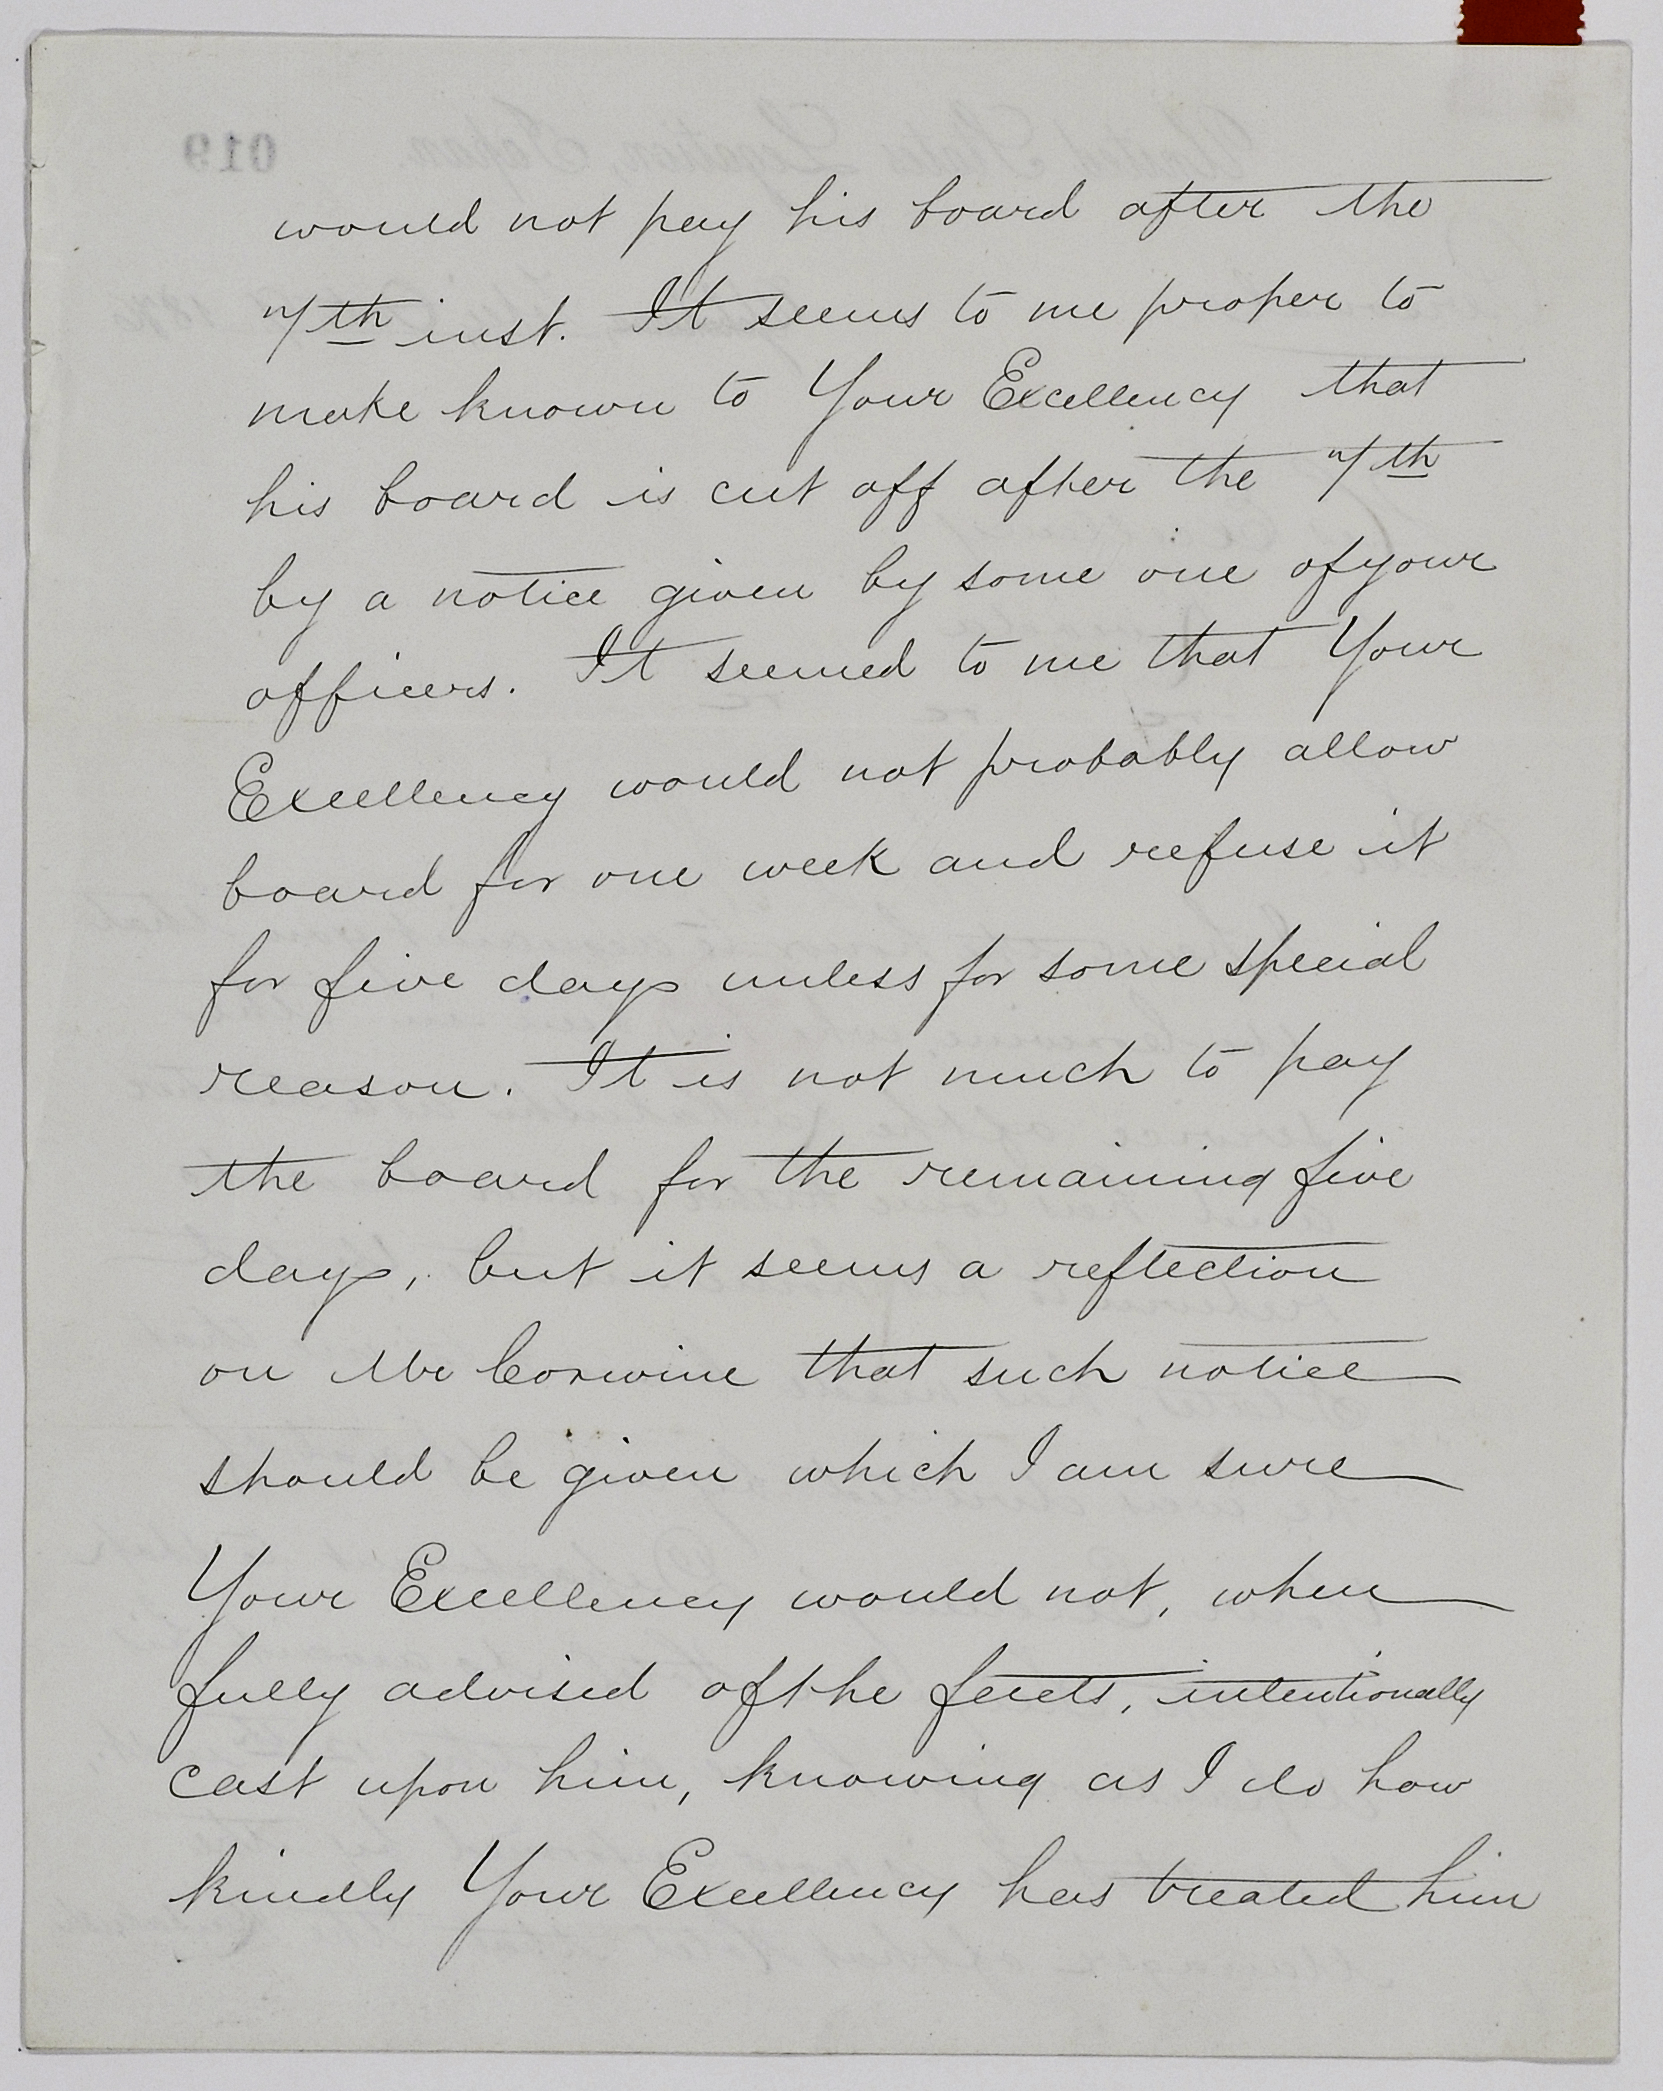 019
would not pay his board after the
7th inst. It seems to me proper to
make known to Your Excellency that
his board is cut off after the 7th
by a notice given by some one of your
officers. It seemed to me that Your
Excellency would not probably allow
board for one week and refuse it
for five days unless for some special
reason. It is not much to pay
the board for the remaining five
days, but it seems a reflection
on Mr Corwine that such notice
should be given which I am sure
Your Excellency would not, when
fully advised of the facts, intentionally
cast upon him, knowing as I do how
kindly Your Excellency has treated him